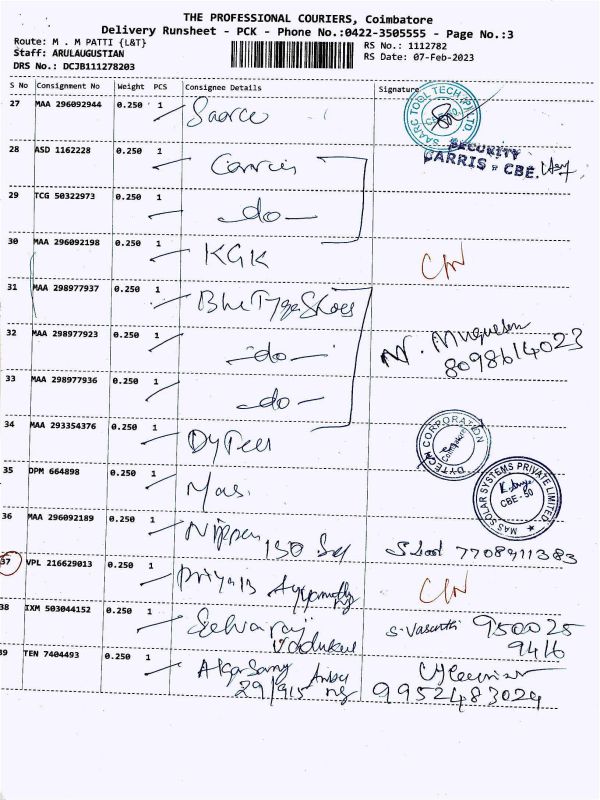 THE PROFESSIONAL COURIERS, Coimbatore
Delivery Runsheet - PCK - Phone No.:0422-3505555 - Page No.:3
Route: M . M PATTI {L&T}
RS No.: 1112782
Staff: ARULAUGUSTIAN
RS Date: 07-Feb-2023
DRS No.: DCJB111278203
S No Consignment No Weight PCS Consignee Details Signature
27 MAA 296092944 0.250 1 Saarc
SAARC TOOL TECH (P) LTD
28 ASD 1162228 0.250 1 Carris
SECURITY
CARRIS - CBE.
29 TCG 50322973 0.250 1 -do-
30 MAA 296092198 0.250 1 KGK C/N
31 MAA 298977937 0.250 1
32 MAA 298977923 0.250 1 -do- N. Murugesan
8098614023
33 MAA 298977936 0.250 1 -do-
34 MAA 293354376 0.250 1 DyTech
DYTECH CORPORATION
Coimbatore
35 DPM 664898 0.250 1 Mas.
MAS SOLAR SYSTEMS PRIVATE LIMITED
CBE-50
36 MAA 296092189 0.250 1 Nippon 150 7708911383
37 VPL 216629013 0.250 1 Priya C/N
38 IXM 503044152 0.250 1 Selvaraj S. Vasanthi 950025
9416
39 TEN 7404493 0.250 1
29/915 ng 9952483024